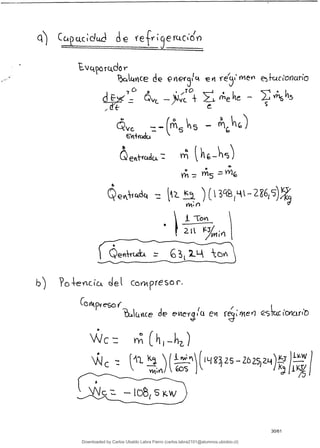 a) Capacidad de refrigeración
Evaporador
Balance de energía en régimen estacionario
dEvc/dt = Q̇vc - Ẇvc + Σ ṁe he - Σ ṁs hs
0 0 e s
Q̇vc = -(ṁ5 h5 - ṁ6 h6)
Entrada
Q̇entrada = ṁ (h6-h5)
ṁ = ṁ5 = ṁ6
Q̇entrada = (12 kg/min)(1398,41-286,5) kJ/kg
· | 1 Ton / 211 kJ/min |
Q̇entrada = 63,24 ton
b) Potencia del compresor.
Compresor
Balance de energía en régimen estacionario
Ẇc = ṁ (h1-h2)
Ẇc = (12 kg/min)(1 min/60s)(1483,25-2025,24) kJ/kg |1 kW/1 kJ/s|
Ẇc = -108,5 kW
30/61
Downloaded by Carlos Ubaldo Labra Fierro (carlos.labra2101@alumnos.ubiobio.cl)